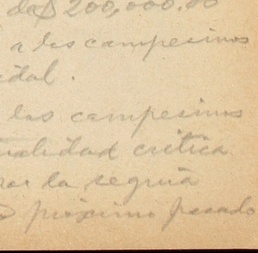 da $200,000.00
a los campesinos
idal.
los campesinos
tualidad critica
por la seguia
próximo pasado